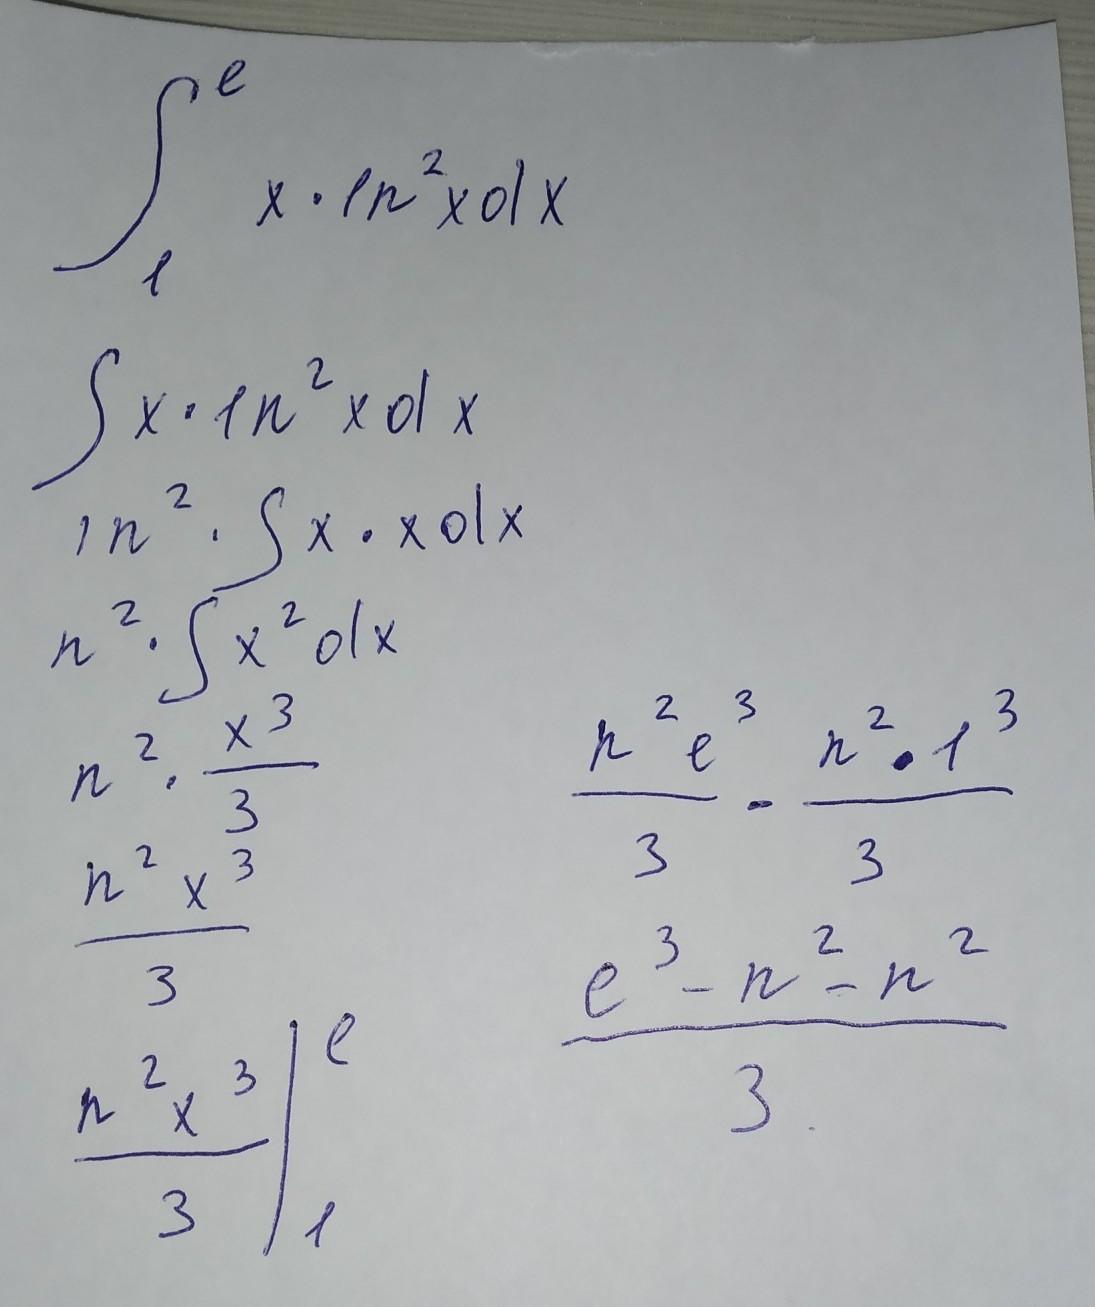 ∫₁ᵉ x · ln²xdx
∫x · ln²xdx
ln² · ∫x · xdx
n² · ∫x²dx
n² · x³/3
n²x³/3
n²x³/3 |₁ᵉ
n²e³/3 - n² · 1³/3
(e³ - n² - n²)/3